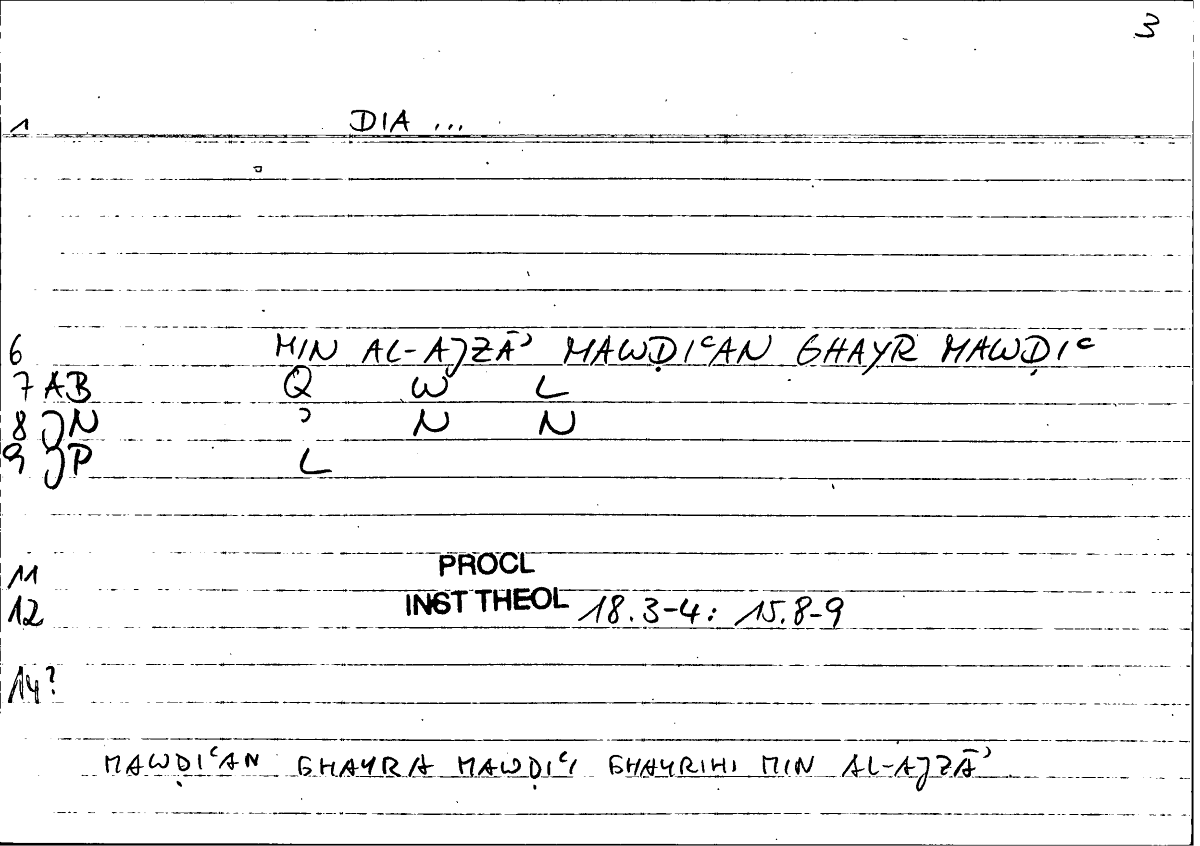 3
1 DIA ...
6 MIN AL-AJZĀʾ MAWḌIʿAN GHAYR MAWḌIʿ
7 AB Q W L
8 JN ʾ N N
9 JP L
11 PROCL
12 INST THEOL 18.3-4: 15.8-9
14?
MAWḌIʿAN GHAYRA MAWḌIʿI GHAYRIHI MIN AL-AJZĀʾ